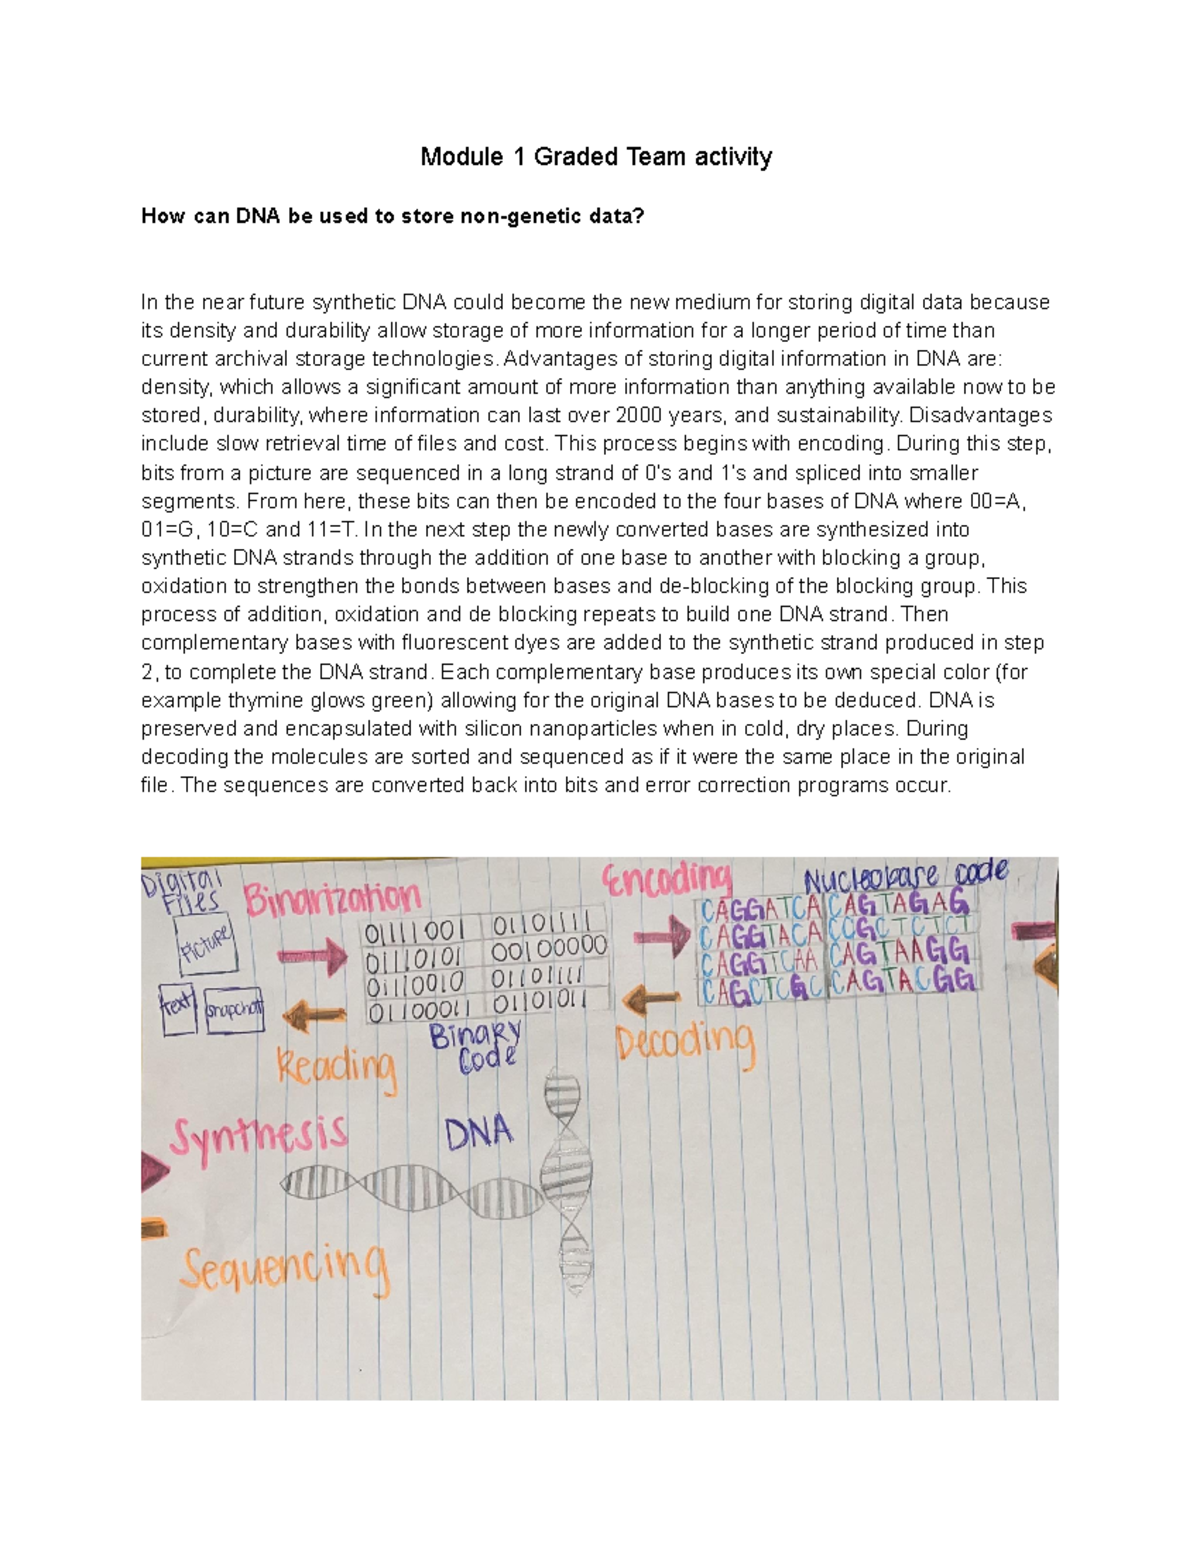 Module 1 Graded Team activity
How can DNA be used to store non-genetic data?
In the near future synthetic DNA could become the new medium for storing digital data because
its density and durability allow storage of more information for a longer period of time than
current archival storage technologies. Advantages of storing digital information in DNA are:
density, which allows a significant amount of more information than anything available now to be
stored, durability, where information can last over 2000 years, and sustainability. Disadvantages
include slow retrieval time of files and cost. This process begins with encoding. During this step,
bits from a picture are sequenced in a long strand of 0's and 1's and spliced into smaller
segments. From here, these bits can then be encoded to the four bases of DNA where 00=A,
01=G, 10=C and 11=T. In the next step the newly converted bases are synthesized into
synthetic DNA strands through the addition of one base to another with blocking a group,
oxidation to strengthen the bonds between bases and de-blocking of the blocking group. This
process of addition, oxidation and de blocking repeats to build one DNA strand. Then
complementary bases with fluorescent dyes are added to the synthetic strand produced in step
2, to complete the DNA strand. Each complementary base produces its own special color (for
example thymine glows green) allowing for the original DNA bases to be deduced. DNA is
preserved and encapsulated with silicon nanoparticles when in cold, dry places. During
decoding the molecules are sorted and sequenced as if it were the same place in the original
file. The sequences are converted back into bits and error correction programs occur.
Digital Files
Binarization
Encoding
Nucleobase code
Picture
text
snapchat
01111001 01101111
01110101 00100000
01110010 01101111
01100011 01101011
CAGGATCA CAGTAGAG
CAGGTACA CCGCTCTCT
CAGGTCAA CAGTAAGG
CAGCTCGC CAGTACGG
Reading
Binary Code
Decoding
Synthesis
DNA
Sequencing